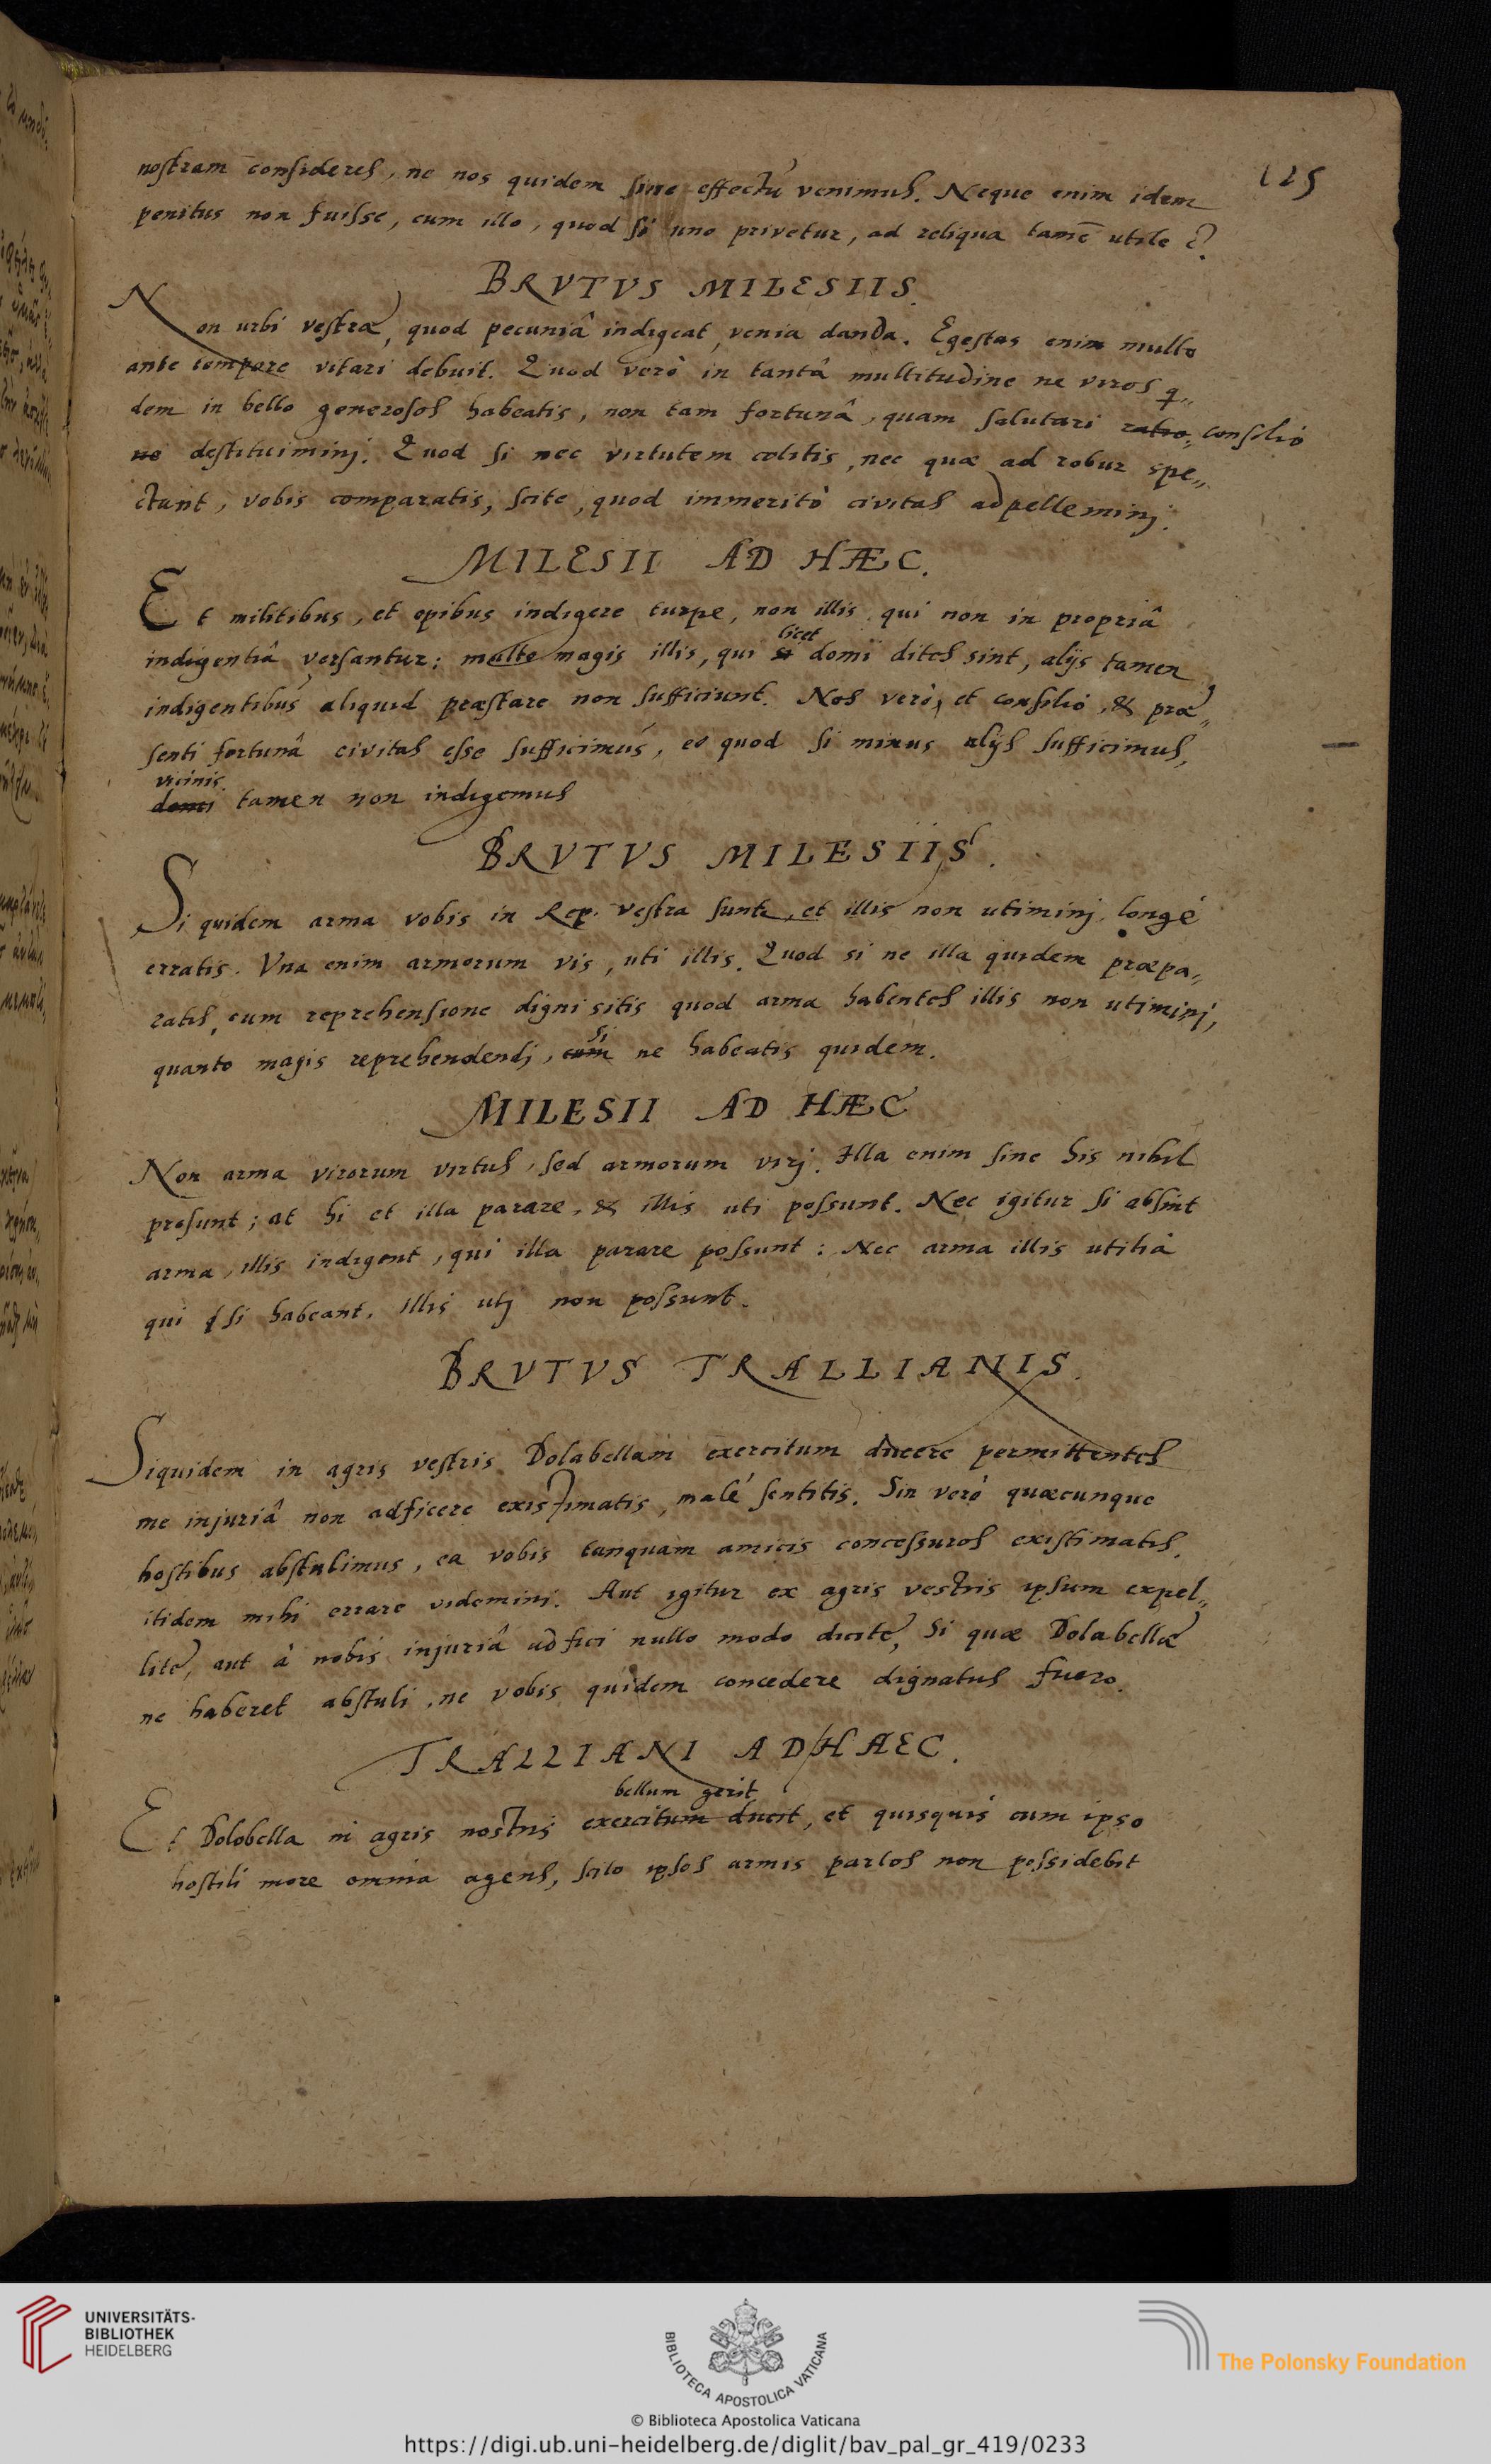 125
nostram consideres, ne nos quidem sine effectu venimus. Neque enim idem
penitus non fuisse, cum illo, quod si uno privetur, ad reliqua tamē utile?
BRVTVS MILESIIS.
Non urbi vestræ, quod pecuniâ indigeat, venia danda. Egestas enim multo
ante tempore vitari debuit. Quod verò in tantâ multitudine ne viros q„
dem in bello generosos habeatis, non tam fortunâ, quam salutari ratio„ consilio
ne destituiminj. Quod si nec virtutem colitis, nec quæ ad robur spe„
ctant, vobis comparatis, scite, quod immeritò civitas adpelleminj.
MILESII AD HÆC.
Et militibus, et opibus indigere turpe, non illis qui non in propriâ
licet
indigentiâ versantur; multo magis illis, qui si domi dites sint, alijs tamen
indigentibus aliquid præstare non sufficiunt. Nos verò, et consilio, & præ„
senti fortunâ civitas esse sufficimus, eo quod si minus alijs sufficimus,
vicinis
domi tamen non indigemus
BRVTVS MILESIIS.
Si quidem arma vobis in Rep. vestra sunt, et illis non utiminj, longé
erratis. Vna enim armorum vis, uti illis. Quod si ne illa quidem præpa„
ratis, cum reprehensione digni sitis quod arma habentes illis non utiminj,
si
quanto magis reprehendendj, cum ne habeatis quidem.
MILESII AD HÆC
Non arma virorum virtus, sed armorum virj. Illa enim sine his nihil
prosunt; at hi et illa parare, & illis uti possunt. Nec igitur si absint
arma, illis indigent, qui illa parare possunt: Nec arma illis utilia
qui si habeant, illis utj non possunt.
BRVTVS TRALLIANIS.
Siquidem in agris vestris Dolabellam exercitum ducere permittentes
me injuriâ non adficere existimatis, malé sentitis. Sin verò quæcunque
hostibus abstulimus, ea vobis tanquam amicis concessuros existimatis,
itidem mihi errare videmini. Aut igitur ex agris vestris ipsum expel„
lite, aut à nobis injuriâ adfici nullo modo dicite, Si quæ Dolabellæ
ne haberet abstuli, ne vobis quidem concedere dignatus fuero.
TRALLIANI AD HAEC.
bellum gerit
Et Dolobella in agris nostris exercitum ducit, et quisquis cum ipso
hostili more omnia agens, scito ipsos armis partos non possidebit
UNIVERSITÄTS-
BIBLIOTHEK
HEIDELBERG
BIBLIOTECA APOSTOLICA VATICANA
The Polonsky Foundation
© Biblioteca Apostolica Vaticana
https://digi.ub.uni-heidelberg.de/diglit/bav_pal_gr_419/0233